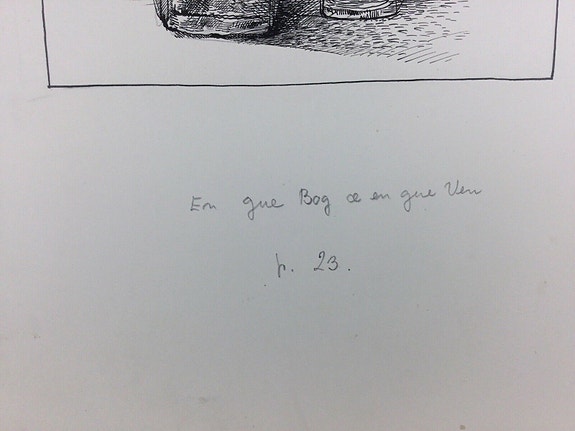 En gue Bog œ en gue Ven
p. 23.